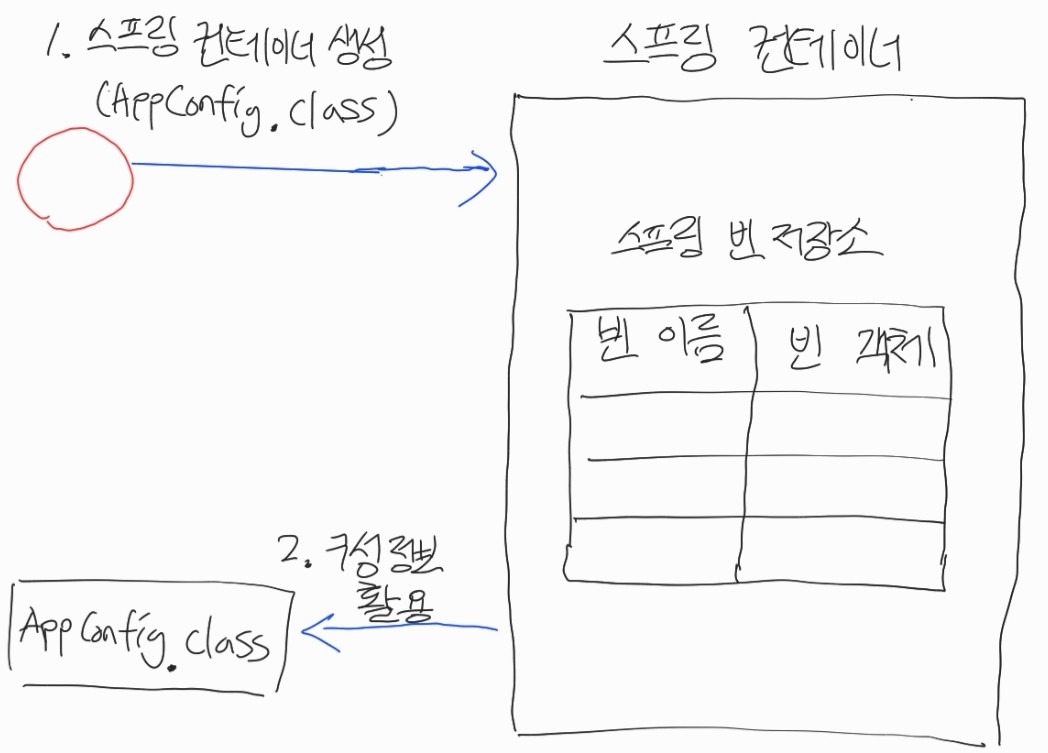 1. 스프링 컨테이너 생성
(AppConfig.class)
스프링 컨테이너
스프링 빈 저장소
빈 이름
빈 객체
2. 구성정보
활용
AppConfig.class